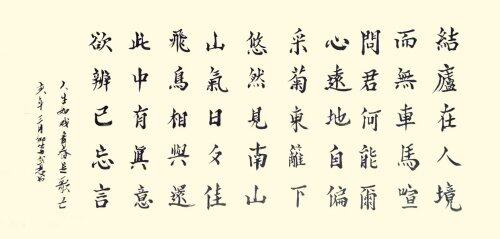 結廬在人境
而無車馬喧
問君何能爾
心遠地自偏
采菊東籬下
悠然見南山
山氣日夕佳
飛鳥相與還
此中有眞意
欲辨已忘言
人生如戏青春是歌
亥年三月